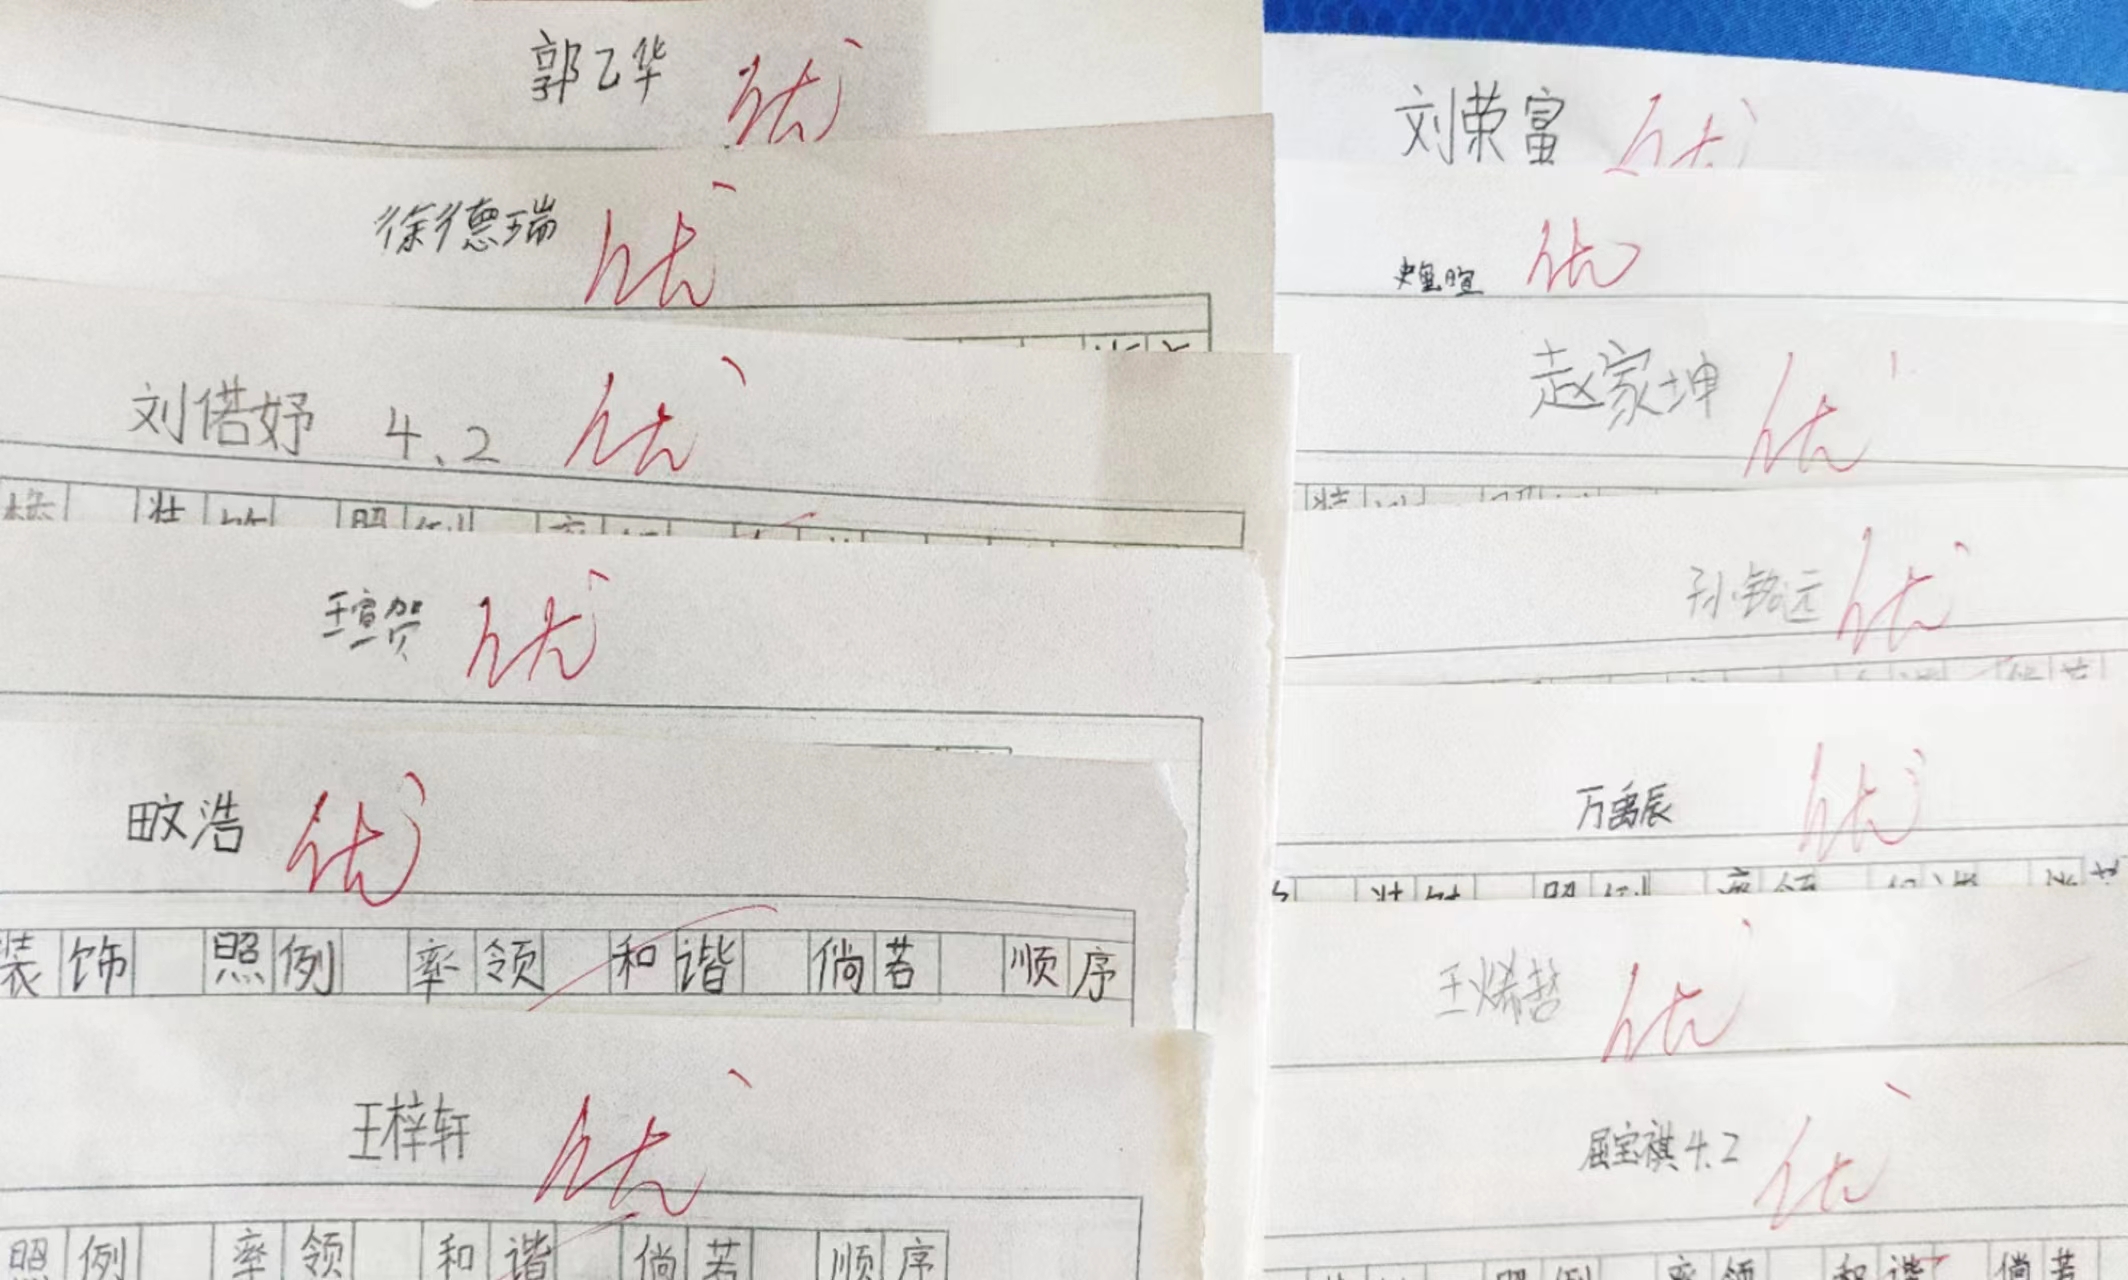 郭乙华 优
徐德瑞 优
刘偌妤 4.2 优
王宣贺 优
田文浩 优
装饰 照例 率领 和谐 倘若 顺序
王梓轩 优
照例 率领 和谐 倘若 顺序
刘荣富 优
优
赵家坤 优
孙铭远 优
万禹辰 优
王烯哲 优
屈宝祺 4.2 优